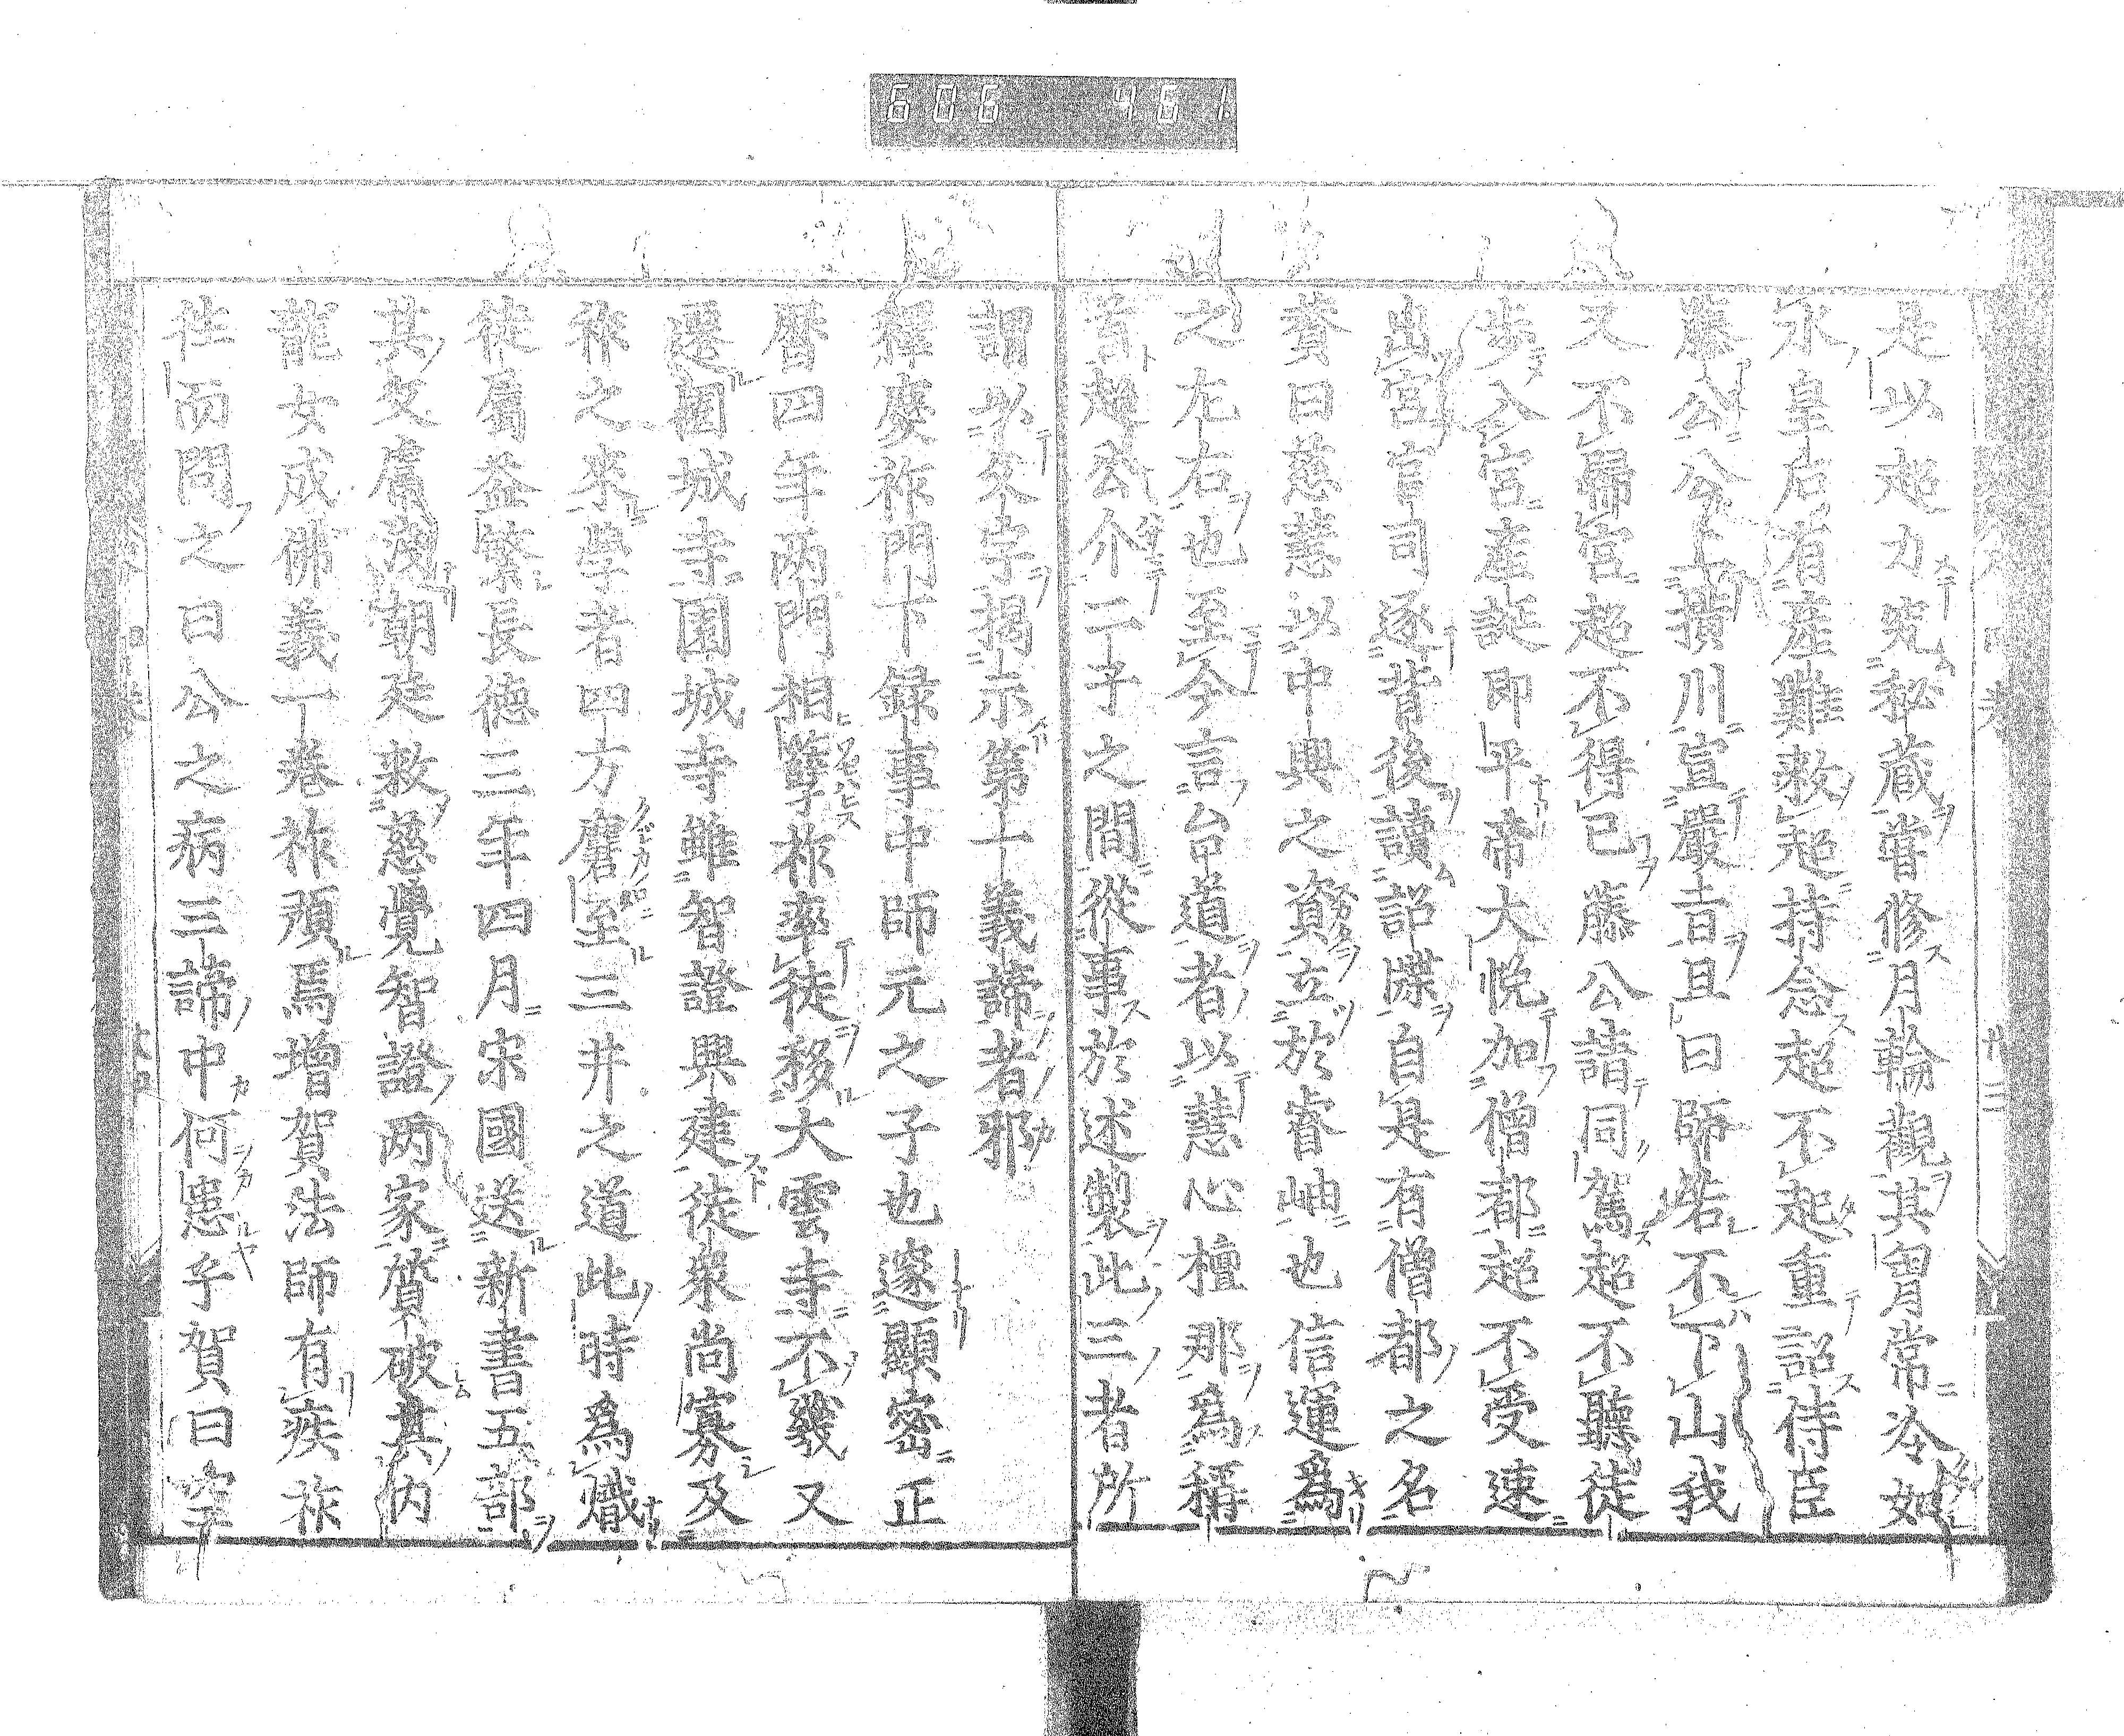 606 461
是以超力究秘藏嘗修月輪觀其胷常冷如
氷皇后有産難救超持念超不起重詔侍臣
藤公公上横川宣嚴旨且曰師若不下山我
又不歸宮超不得已藤公請同駕超不聽徒
歩入宮産誕即平帝大悅加僧都超不受速
出宮官司逐背後讀詔牒自是有僧都之名
賛曰慈慧以中興之資立於睿岫也信運爲
之左右也至今言台道者以慧心檀那爲稱
首超公介二子之間從事於述製此三者所
謂以冬字揭示第十義諦者邪
釋慶祚門下録事中師元之子也邃顯密正
暦四年兩門相孽祚率徒移大雲寺不幾又
遷園城寺園城寺雖智證興建徒衆尚寡及
祚之來學者四方麏至三井之道此時爲熾
徒屬益繁長德三年四月宋國送新書五部
其文膚淺朝廷敕慈覺智證两家質破其内
龍女成佛義一巻祚預焉增賀法師有疾祚
往而問之曰公之病三諦中何患乎賀曰空